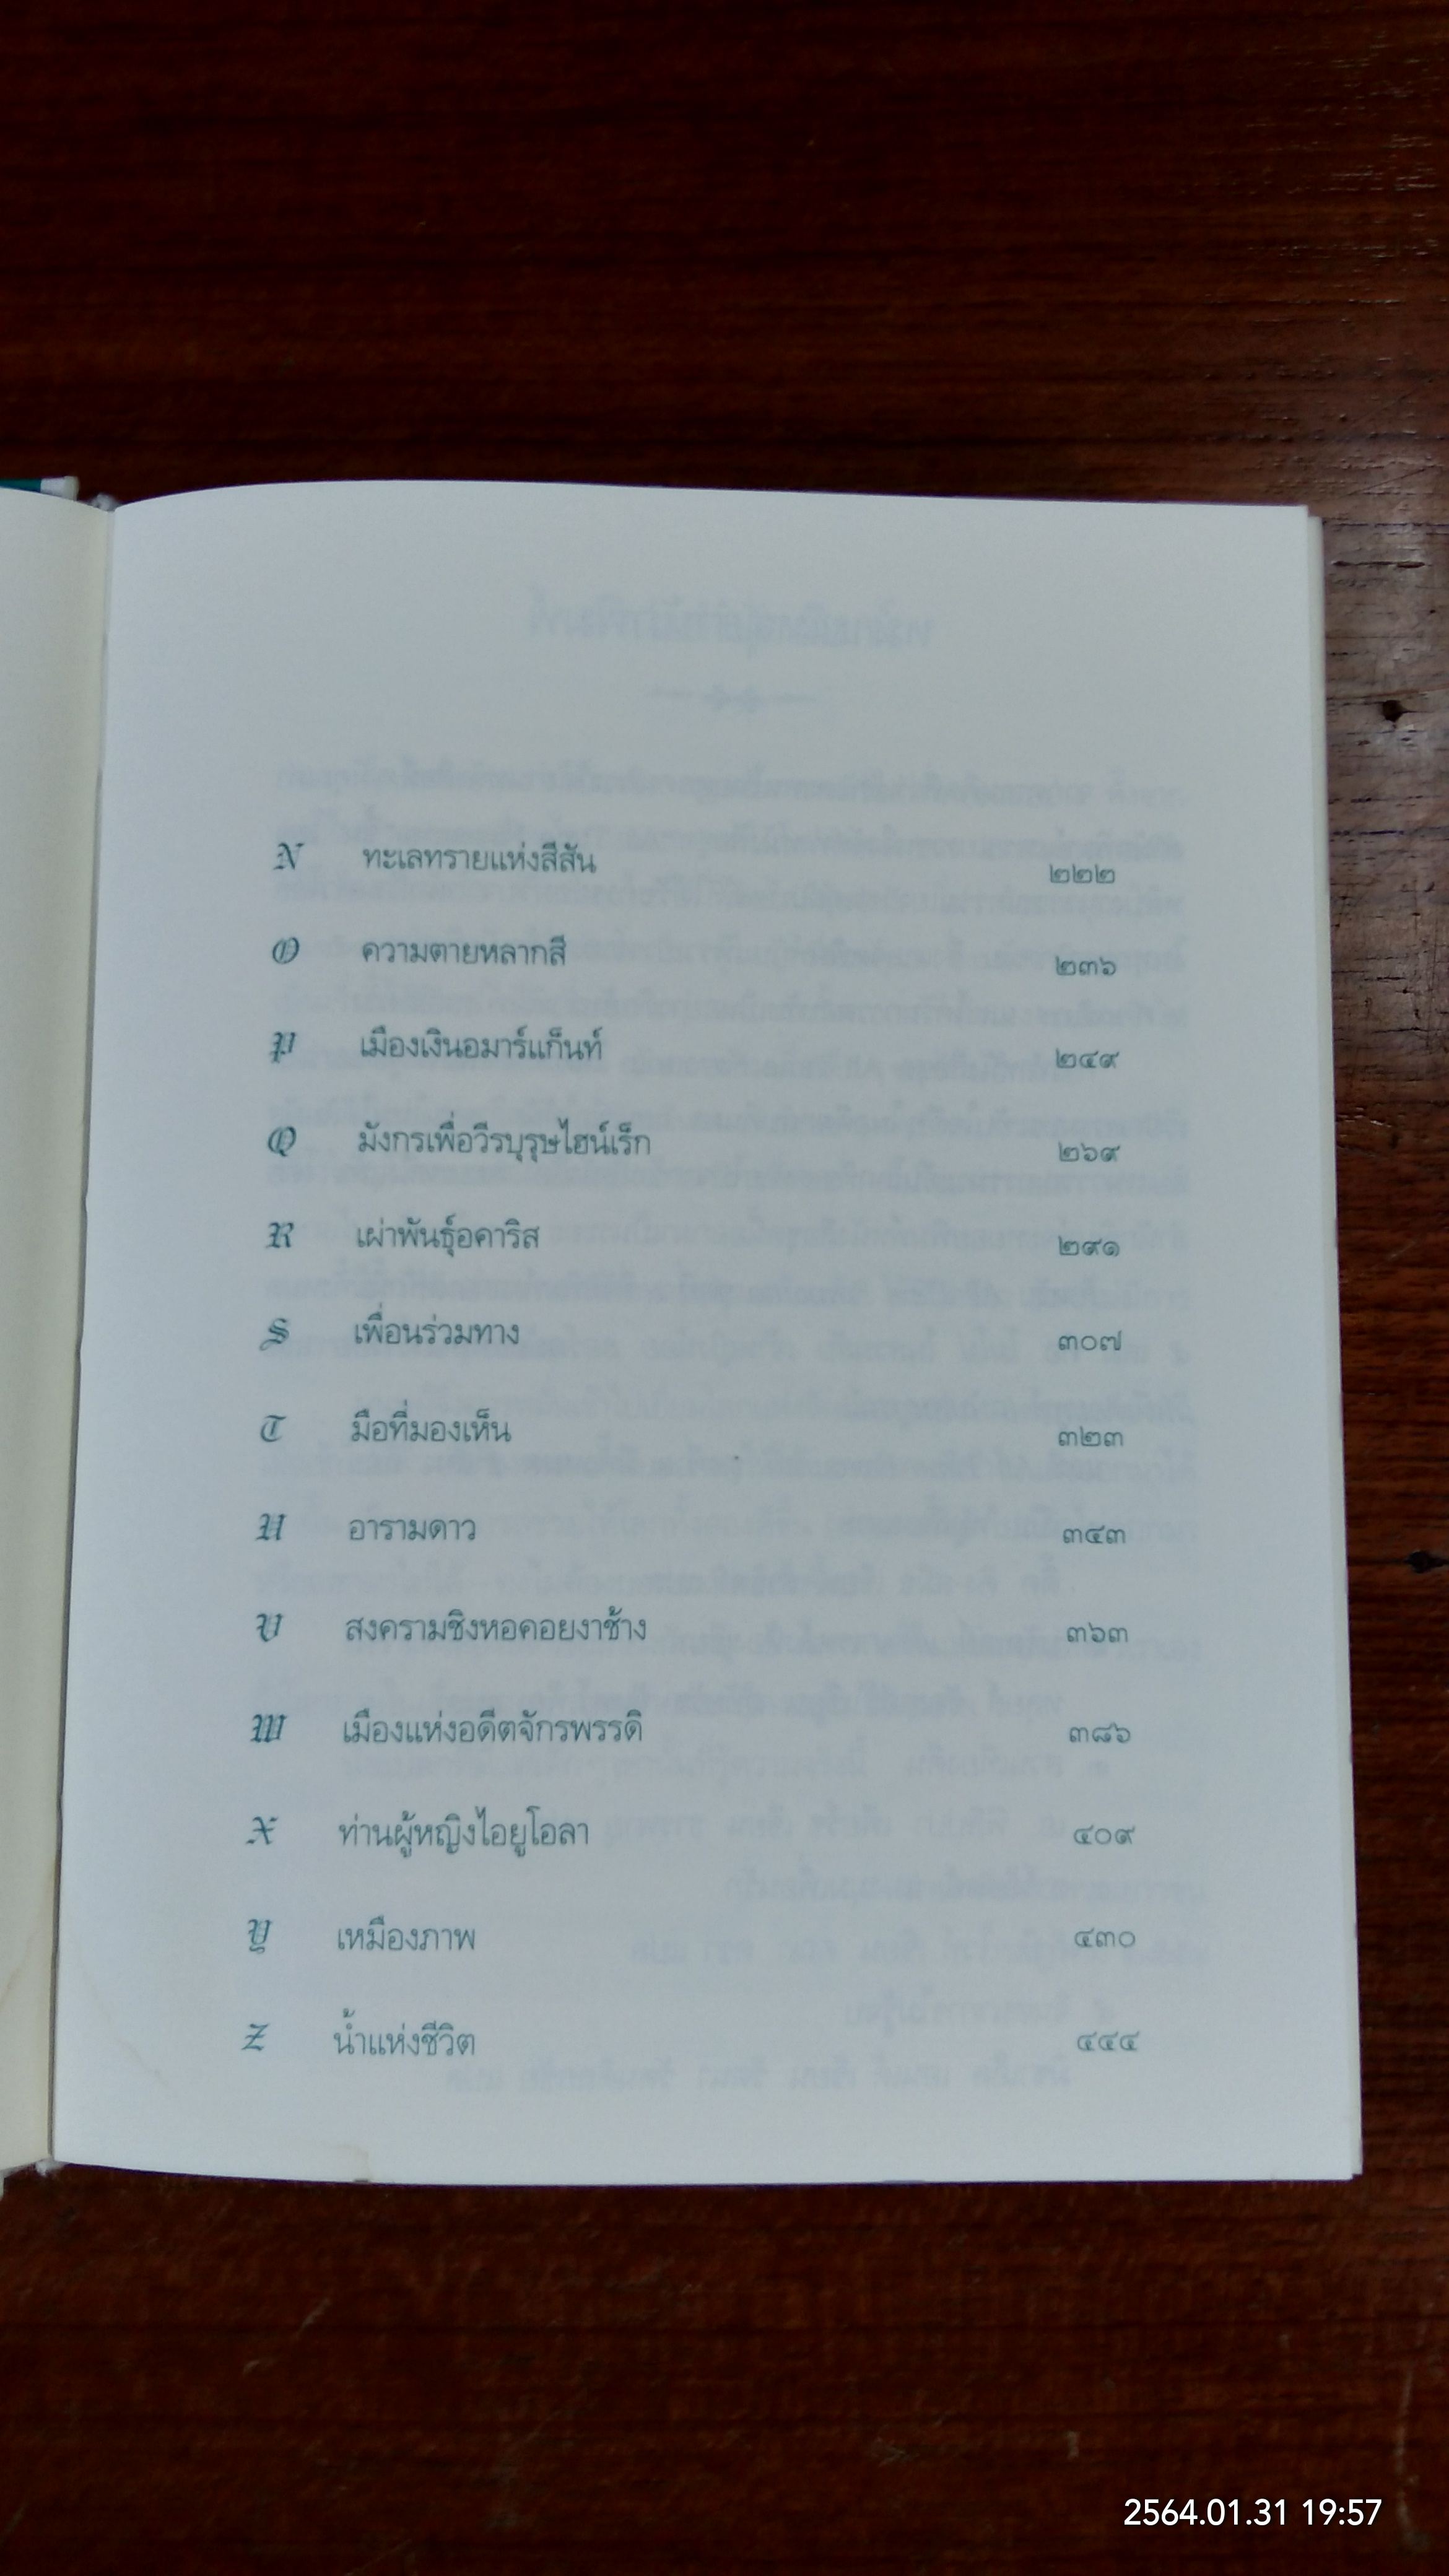 N ทะเลทรายแห่งสีสัน ๒๒๒
O ความตายหลากสี ๒๓๖
P เมืองเงินอมาร์แก็นท์ ๒๔๙
Q มังกรเพื่อวีรบุรุษไฮน์เร็ก ๒๖๙
R เผ่าพันธุ์อคาริส ๒๙๑
S เพื่อนร่วมทาง ๓๐๗
T มือที่มองเห็น ๓๒๓
U อารามดาว ๓๔๓
V สงครามชิงหอคอยงาช้าง ๓๖๓
W เมืองแห่งอดีตจักรพรรดิ ๓๘๖
X ท่านผู้หญิงไอยูโอลา ๔๐๙
Y เหมืองภาพ ๔๓๐
Z น้ำแห่งชีวิต ๔๔๔
2564.01.31 19:57